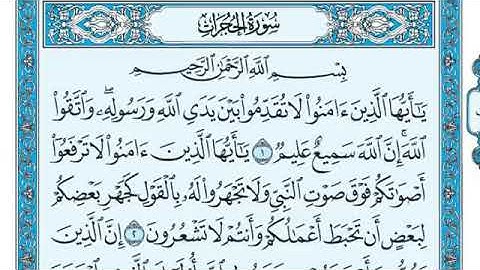 سُورَةُ الحُجُرَاتِ
بِسْمِ اللَّهِ الرَّحْمَٰنِ الرَّحِيمِ
يَٰٓأَيُّهَا الَّذِينَ ءَامَنُوا۟ لَا تُقَدِّمُوا۟ بَيْنَ يَدَىِ اللَّهِ وَرَسُولِهِۦ ۖ وَاتَّقُوا۟
اللَّهَ ۚ إِنَّ اللَّهَ سَمِيعٌ عَلِيمٌ ١ يَٰٓأَيُّهَا الَّذِينَ ءَامَنُوا۟ لَا تَرْفَعُوٓا۟
أَصْوَٰتَكُمْ فَوْقَ صَوْتِ النَّبِىِّ وَلَا تَجْهَرُوا۟ لَهُۥ بِالْقَوْلِ كَجَهْرِ بَعْضِكُمْ
لِبَعْضٍ أَن تَحْبَطَ أَعْمَٰلُكُمْ وَأَنتُمْ لَا تَشْعُرُونَ ٢ إِنَّ الَّذِينَ